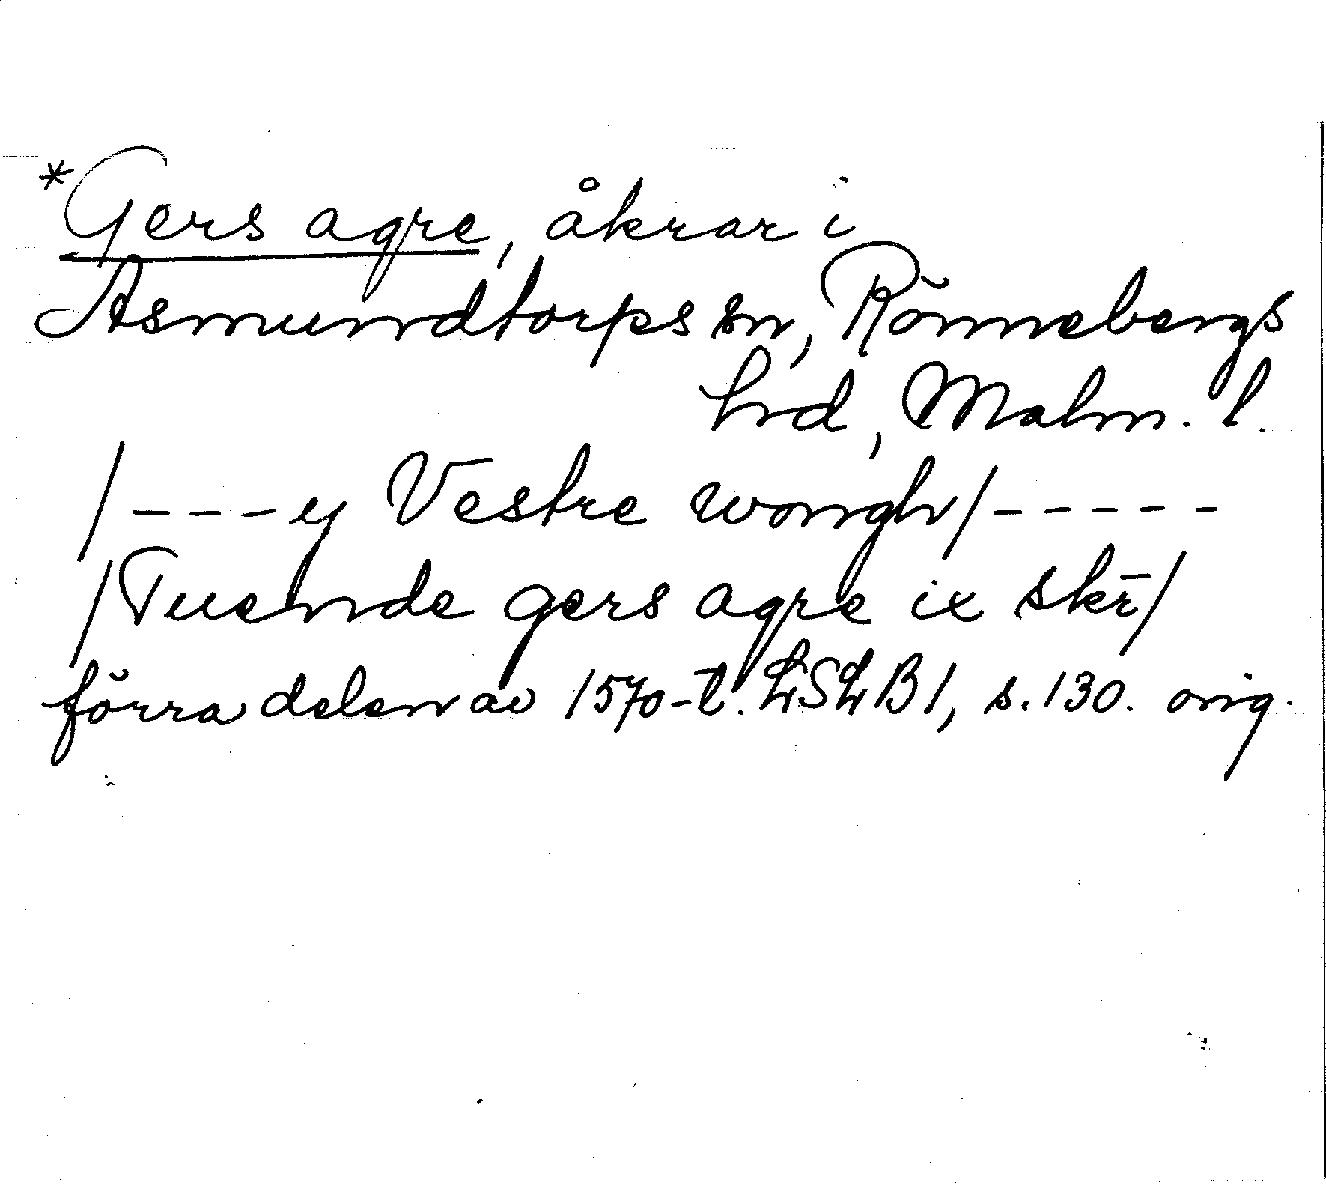 *Gers agre, åkrar i
Asmundtorps sn, Rönnebergs
hrd, Malm. l.
/---y Vestre wongh/-----
/Tuende gers agre ix skr̄/
förra delen av 1570-t. LSLB1, s.130. orig.